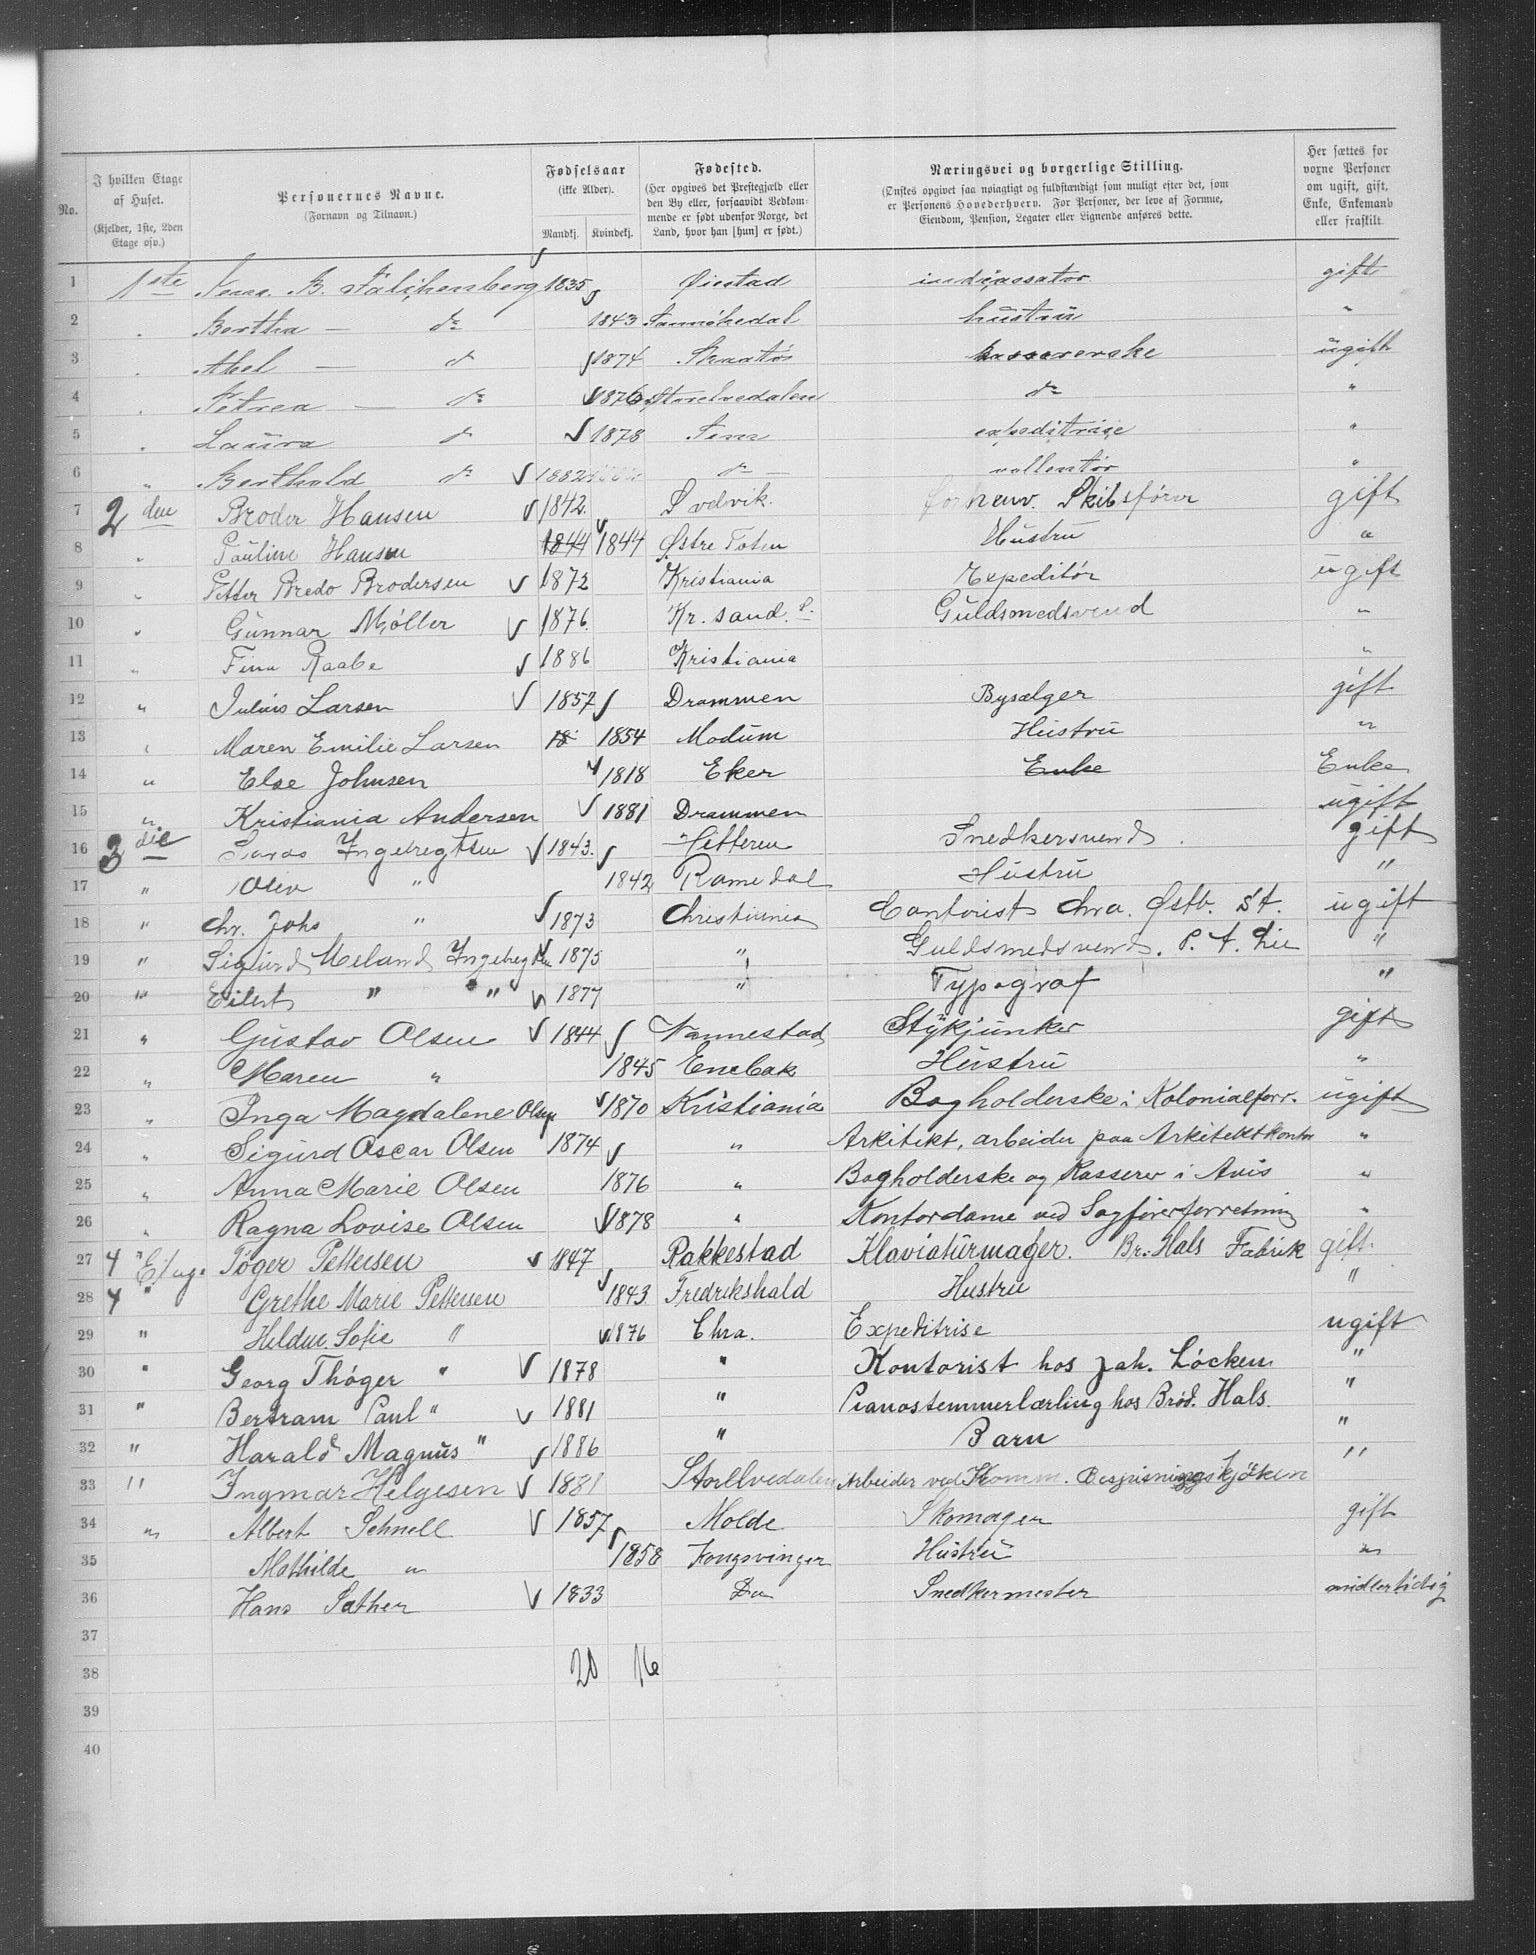 No.
I hvilken Etage af Huset.
(Kjelder, 1ste, 2den Etage osv.)
Personernes Navne.
(Fornavn og Tilnavn.)
Fødselsaar
(ikke Alder).
Mandkj. Kvindekj.
Fødested.
(Her opgives det Prestegjæld eller den By eller, forsaavidt Vedkommende er født udenfor Norge, det Land, hvor han [hun] er født.)
Næringsvei og borgerlige Stilling.
(Ønskes opgivet saa nøiagtigt og fuldstændigt som muligt efter det, som er Personens Hovederhverv. For Personer, der leve af Formue, Eiendom, Pension, Legater eller Lignende anføres dette.)
Her sættes for vorne Personer om ugift, gift, Enke, Enkemand eller fraskilt.
1 1ste B. Falchenberg 1835 Øiestad gift
2 " Bertha — do 1843 Sannøkedal hustru "
3 " Abel — do 1874 Skaatø kassererske ugift
4 " Petrea — do 1876 do "
5 " Laura do 1878 expeditrise "
6 " Berthold do 1882 do — vollentør "
7 2den Broder Hansen 1842 Svelvik. Forhenv. Skibsfører gift
8 " Pauline Hansen 1844 1844 Østre Toten Hustru "
9 " Petter Bredo Brodersen 1872 Kristiania Expeditør ugift
10 " Gunnar Møller 1876 Kr. sand. S. Guldsmedsvend "
11 " Finn Raabe 1886 Kristiania "
12 " Julius Larsen 1857 Drammen Bysælger gift
13 " Maren Emilie Larsen 18 1854 Modum Hustru "
14 " Else Johnsen 1818 Eker Enke Enke
15 " Kristiania Andersen 1881 Drammen ugift
16 3die Ingebregtsen 1843. Hitteren Snedkersvend. gift
17 " Oliv " 1842 Romedal Hustru "
18 " Chr. Johs " 1873 Christiania Contorist Chra. Østb. St. ugift
19 " Sigurd Meland Ingebregtsen 1875 " Guldsmedsvend. P. A. Lie "
20 " Eilert " " 1877 " Typograf "
21 " Gustav Olsen 1844 Nannestad Stykjunker gift
22 " Maren " 1845 Enebak Hustru "
23 " Inga Magdalene Olsen 1870 Kristiania Bogholderske i Kolonialforr. ugift
24 " Sigurd Oscar Olsen 1874 " Arkitekt, arbeider paa Arkitektkontor "
25 " Anna Marie Olsen 1876 " Bogholderske og Kasserer i Avis "
26 " Ragna Lovise Olsen 1878 " Kontordame ved Sagførerforretning "
27 4 Etag. Tøger Pettersen 1847 Rakkestad Klaviaturmager. Br. Hals Fabrik gift
28 4 " Grethe Marie Pettersen 1843 Fredrikshald Hustru "
29 " Hildur Sofie " 1876 Chra. Expeditrise ugift
30 " Georg Thøger " 1878 " Kontorist hos Joh. Løcken "
31 " Bertram Paul " 1881 " Pianostemmerlærling hos Brød. Hals. "
32 " Harald Magnus " 1886 " Barn "
33 " Ingmar Helgesen 1881 Storelvedalen Arbeider ved Komm. Bespisningskjøken "
34 " Albert Schnell 1857 Molde Skomager gift
35 Mathilde " 1858 Kongsvinger Hustru "
36 Hans Sæther 1833 Do Snedkermester midlertidig
37
38 20 16
39
40